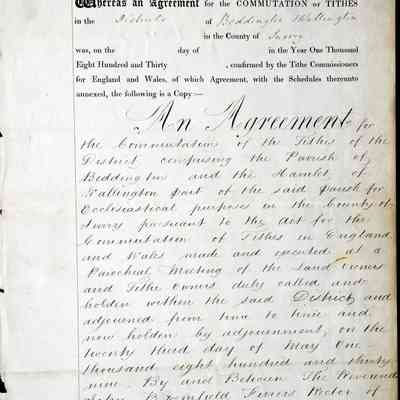 Whereas an Agreement for the COMMUTATION OF TITHES
in the Districts of Beddington Wallington
in the County of Surrey
was, on the day of in the Year One Thousand
Eight Hundred and Thirty , confirmed by the Tithe Commissioners
for England and Wales, of which Agreement, with the Schedules thereunto
annexed, the following is a Copy:—
An Agreement for
the Commutation of the Tithes of the
District comprising the Parish of
Beddington and the Hamlet of
Wallington part of the said Parish for
Ecclesiastical purposes in the County of
Surrey pursuant to the Act for the
Commutation of Tithes in England
and Wales made and executed at a
Parochial Meeting of the Land Owners
and Tithe Owners duly called and
holden within the said District and
adjourned from time to time and
now holden by adjournment, on the
twenty third day of May One
thousand eight hundred and thirty
nine. By and Between The Reverend
John Bromfield Ferrers Rector of